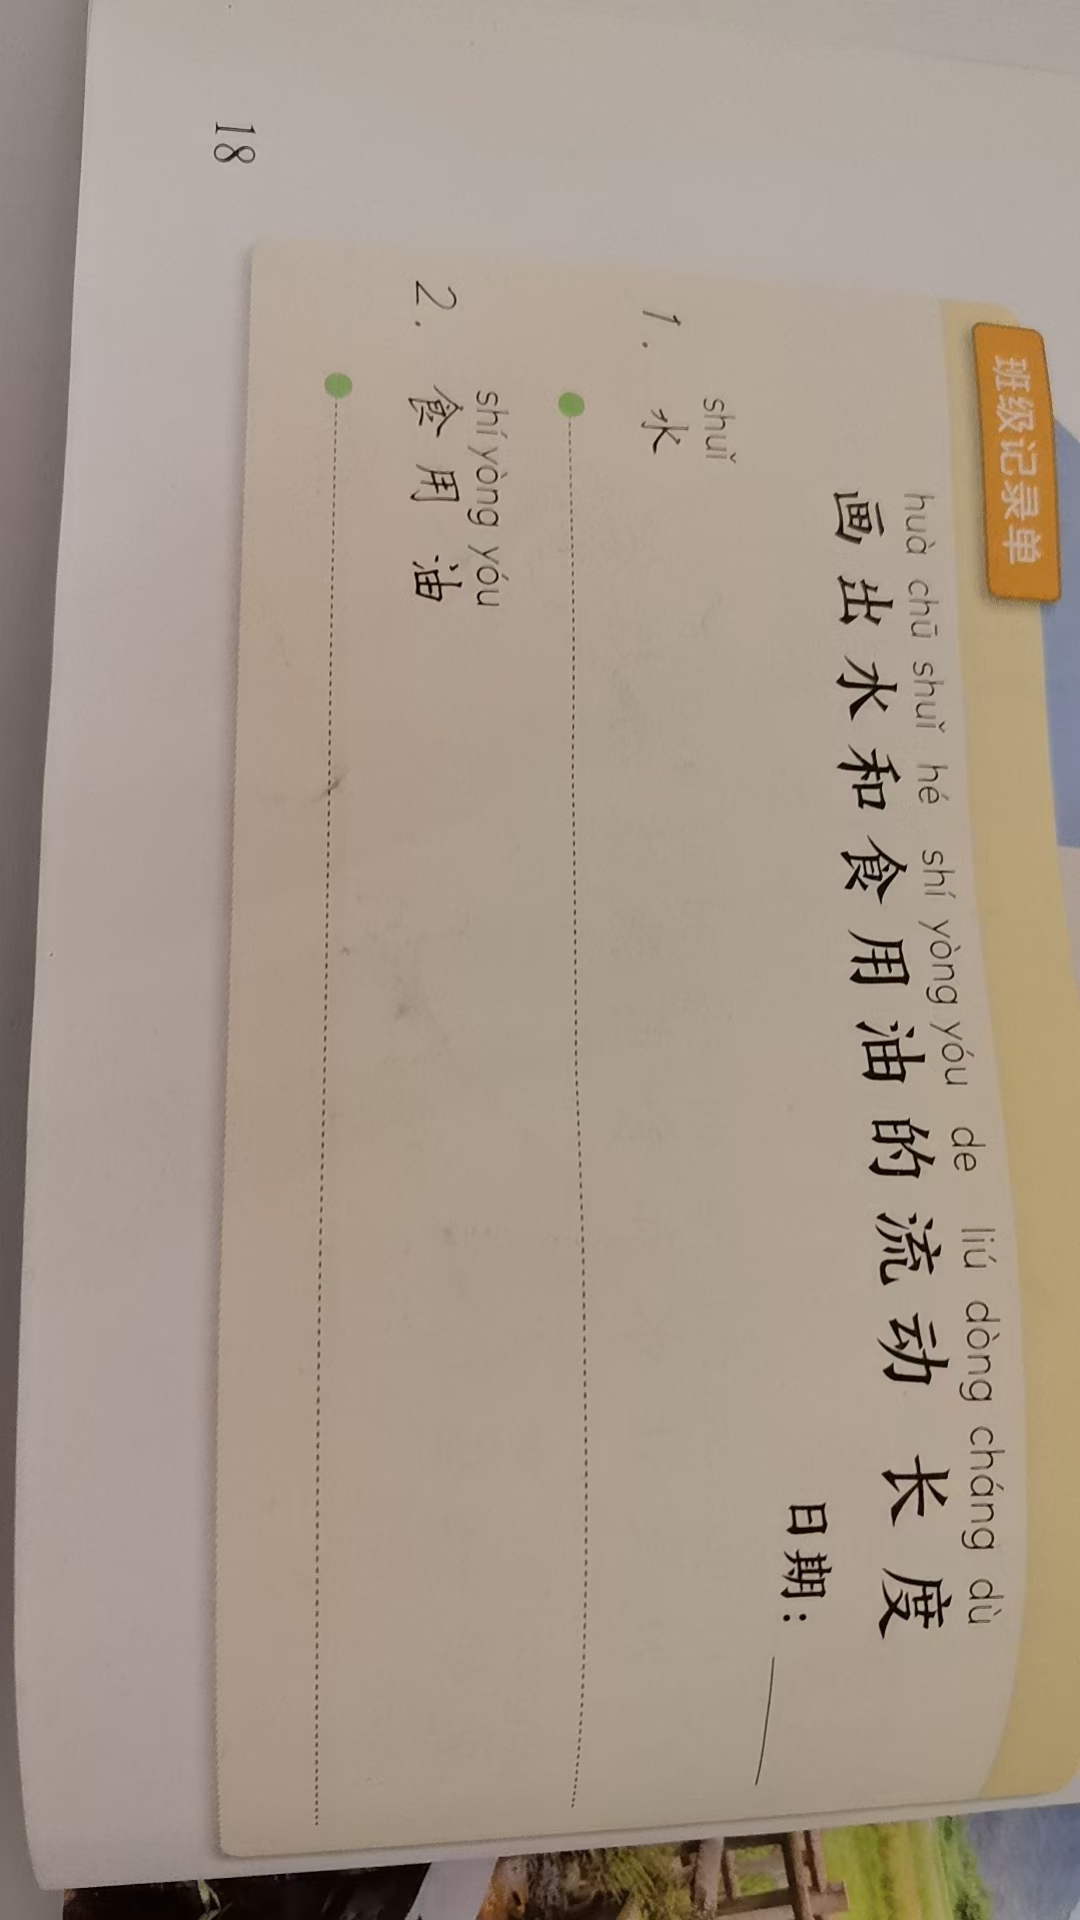 班级记录单
huà chū shuǐ hé shí yòng yóu de liú dòng cháng dù
画出水和食用油的流动长度
日期：
shuǐ
1. 水
shí yòng yóu
2. 食用油
18